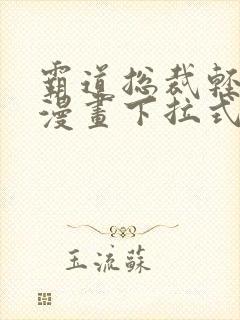 霸道总裁轻
漫畫下拉式
玉流蘇